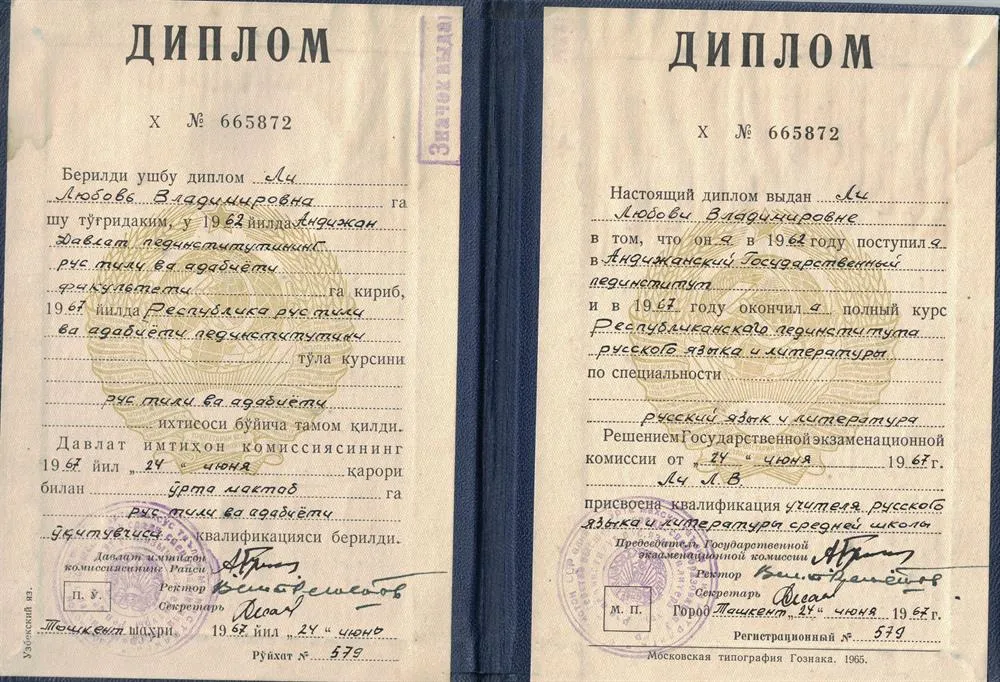 ДИПЛОМ
Значок выдан
X № 665872
Берилди ушбу диплом Ли
Любовь Владимировна га
шу тўғридаким, у 1962 йилда Андижан
Давлат пединститутининг
рус тили ва адабиёти
факультети га кириб,
1967 йилда Республика рус тили
ва адабиёти пединститутини
тўла курсини
рус тили ва адабиёти
ихтисоси бўйича тамом қилди.
Давлат имтиҳон комиссиясининг
1967 йил „24“ июня қарори
билан ўрта мактаб га
рус тили ва адабиёти
ўқитувчиси квалификацияси берилди.
Давлат имтиҳон
комиссиясининг Раиси
Ректор
Секретарь
П. Ў.
Ташкент шаҳри. 1967 йил „24“ июнь
Рўйхат № 579
Узбекский яз.
ДИПЛОМ
X № 665872
Настоящий диплом выдан Ли
Любови Владимировне
в том, что она в 1962 году поступила
в Андижанский Государственный
пединститут
и в 1967 году окончила полный курс
Республиканского пединститута
русского языка и литературы
по специальности
русский язык и литература
Решением Государственной экзаменационной
комиссии от „24“ июня 1967 г.
Ли Л. В.
присвоена квалификация учителя русского
языка и литературы средней школы
Председатель Государственной
экзаменационной комиссии
Ректор
Секретарь
М. П.
Город Ташкент „24“ июня 1967 г.
Регистрационный № 579
Московская типография Гознака. 1965.